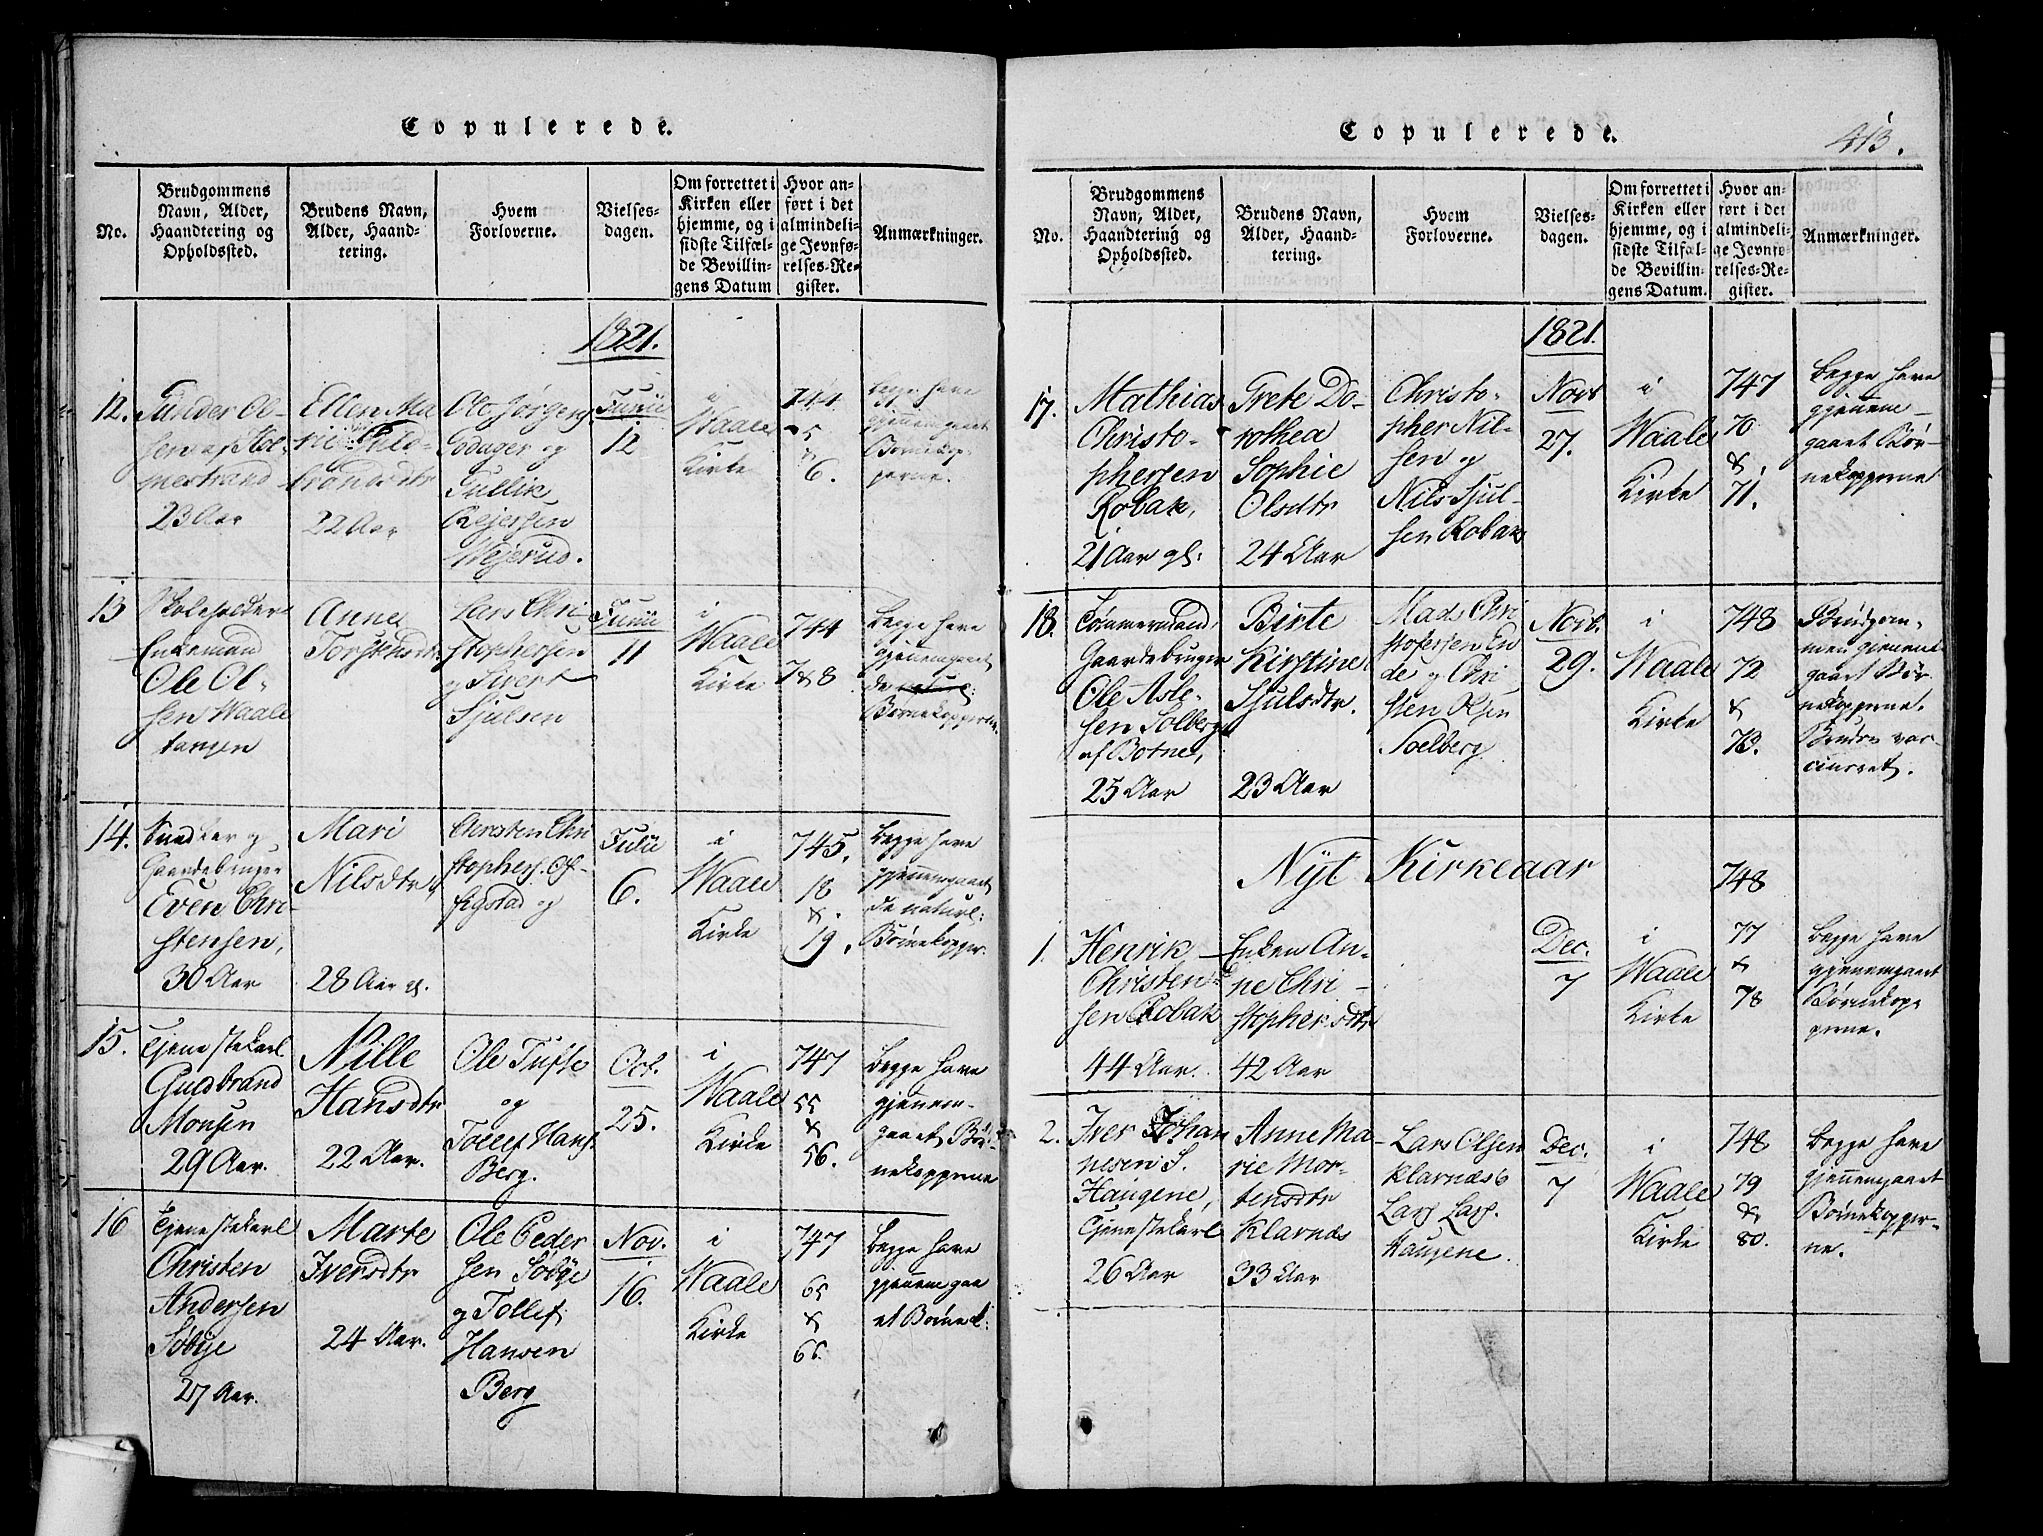 Copulerede.
No.
Brudgommens
Navn, Alder,
Haandtering og
Opholdssted.
Brudens Navn,
Alder, Haand-
tering.
Hvem
Forloverne.
Vielses-
dagen.
Om forrettet i
Kirken eller
hjemme, og i
sidste Tilfæl-
de Bevillin-
gens Datum
Hvor an-
ført i det
almindeli-
ge Jevnfø-
relses-Re-
gister.
Anmærkninger.
1821.
12.
Gunder Ol-
sen af Hol-
mestrand
23 Aar
Ellen Ma
rie Guld-
brandsdtr
22 Aar
Ole Jørgens
Godager og
Gullik
Rejersen
Wejerud.
Junii
12
i
Waale
Kirke
744
5
&
6.
begge have
gjennemgaaet
Børnekop-
perne.
13
Skoleholder
Enkemand
Ole Ol-
sen Waale
tangen
Anne
Torstensdtr
Lars Chri
stophersen
og Sivert
Sjulsen
Junii
11
i
Waale
Kirke
744
7&8
begge have
gjennemgaaet
de naturl:
Børnekopperne.
14.
Snedker og
Gaardebruger
Even Chri-
stensen,
30 Aar
Mari
Nilsdtr
28 Aar gl.
Christen Chri
stophers. Ol-
segstad og
Julii
6.
i
Waale
Kirke
745.
18
&
19.
begge have
gjennemgaaet
de naturl:
Børnekopper.
15.
Tjenestekarl
Guldbrand
Monsen
29 Aar.
Nille
Hansdtr
22 Aar.
Ole Tufte
og
Tollef Hans.
Berg.
Oct.
25.
i
Waale
Kirke
747
55
&
56.
begge have
gjennem-
gaaet Bør-
nekopperne
16
Tjenestekarl
Christen
Andersen
Søbye
27 Aar.
Marte
Iversdtr
24 Aar.
Ole Peder
sen Søbye
og Tollef
Hansen
Berg
Nov.
16.
i
Waale
Kirke
747
65
&
66.
begge have
gjennemgaa
et Børnek:
Copulerede.
413.
No.
Brudgommens
Navn, Alder,
Haandtering og
Opholdssted.
Brudens Navn,
Alder, Haand-
tering.
Hvem
Forloverne.
Vielses-
dagen.
Om forrettet i
Kirken eller
hjemme, og i
sidste Tilfæl-
de Bevillin-
gens Datum.
Hvor an-
ført i det
almindeli-
ge Jevnfø-
relses-Re-
gister.
Anmærkninger.
1821.
17.
Mathias
Christo-
phersen
Robak,
21 Aar gl:
Grete Do-
rothea
Sophie
Olsdtr
24 Aar
Christo-
pher Nil-
sen og
Nils Sjul-
sen Robak
Novb
27.
i
Waale
Kirke
747
70
&
71.
begge have
gjennem-
gaaet Bør-
nekopperne
18.
Tømmermand
Gaardebruger
Ole Asle-
sen Solberg
af Botne,
25 Aar
Birte
Kirstine
Sjulsdtr.
23 Aar
Mads Chri
stofersen En
de og Chri
sten Olsen
Solberg
Novb.
29.
i
Waale
Kirke
748
72
&
73.
Brudgom-
men gjennem
gaaet Bør-
nekopperne.
Bruden vac-
cineret.
Nyt Kirkeaar
748
1.
Henrik
Christen-
sen Robak
44 Aar.
Enken An-
ne Chri-
stophersdtr
42 Aar
Dec.
7
i
Waale
Kirke
77
&
78
begge have
gjennemgaaet
Børnekop-
perne.
2.
Iver Johan
nesen S.
Haugene,
Tjenestekarl
26 Aar
Anne Ma-
rie Mor-
tensdtr
Klarnæs
33 Aar
Lars Olsen
Klarnæs &
Lars Lars.
Haugene.
Dec.
7
i
Waale
Kirke
748
79
&
80.
begge have
gjennemgaaet
Børnekopper-
ne.